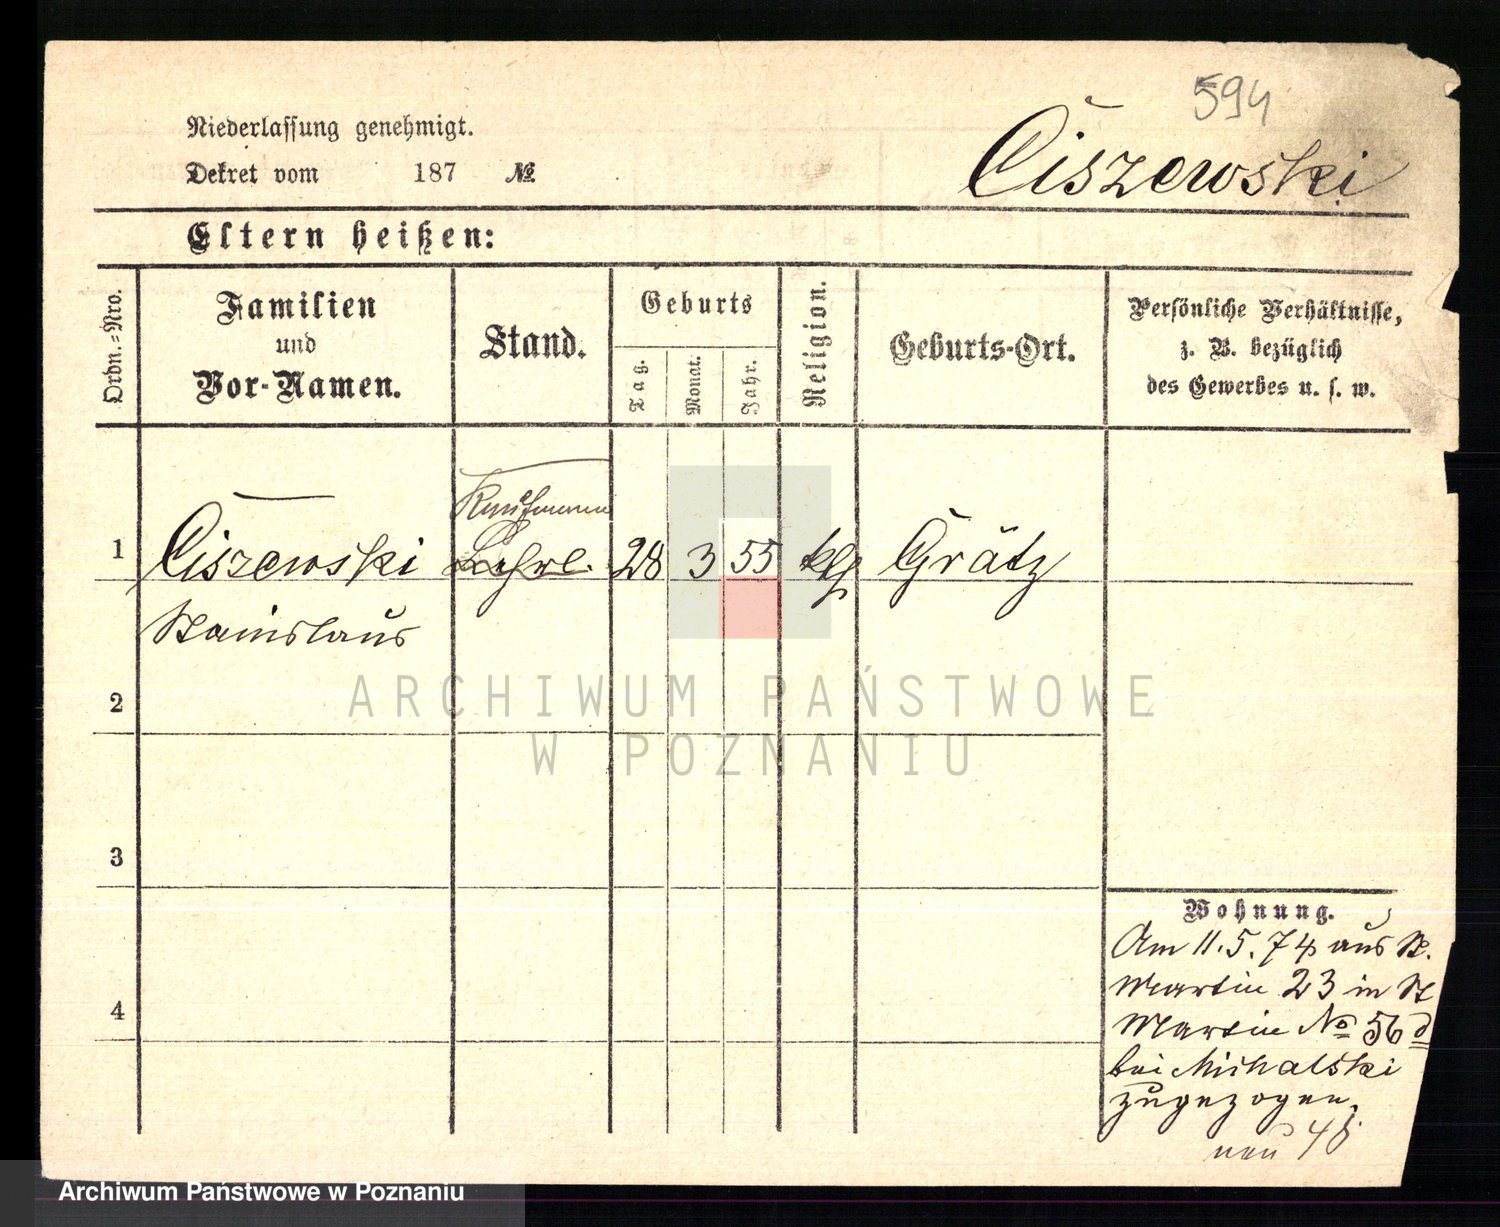 594
Niederlassung genehmigt.
Dekret vom 187 №
Ciszewski
Eltern heißen:
Ordn.-Nro.
Familien
und
Vor-Namen.
Stand.
Geburts
Tag.
Monat.
Jahr.
Religion.
Geburts-Ort.
Persönliche Verhältnisse,
z. B. bezüglich
des Gewerbes u. s. w.
Kaufmann
1 Ciszewski Lehrl. 28 3 55 Grätz
Stanislaus
2
3
4
Wohnung.
Am 11. 5. 74 aus St.
Martin 23 in St
Martin No 56 d
bei Michalski
zugezogen.
neu 48
ARCHIWUM PAŃSTWOWE
W POZNANIU
Archiwum Państwowe w Poznaniu